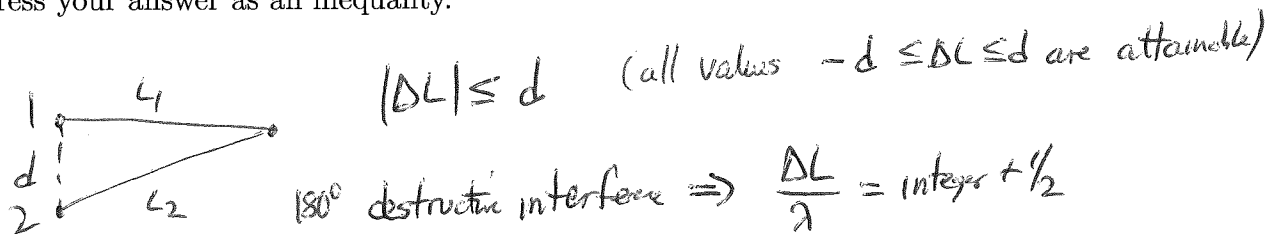 ress your answer as an inequality.
|ΔL| ≤ d (all values -d ≤ ΔL ≤ d are attainable)
1 L₁
d
2 L₂
180° destructive interference ⇒ ΔL/λ = integer + 1/2